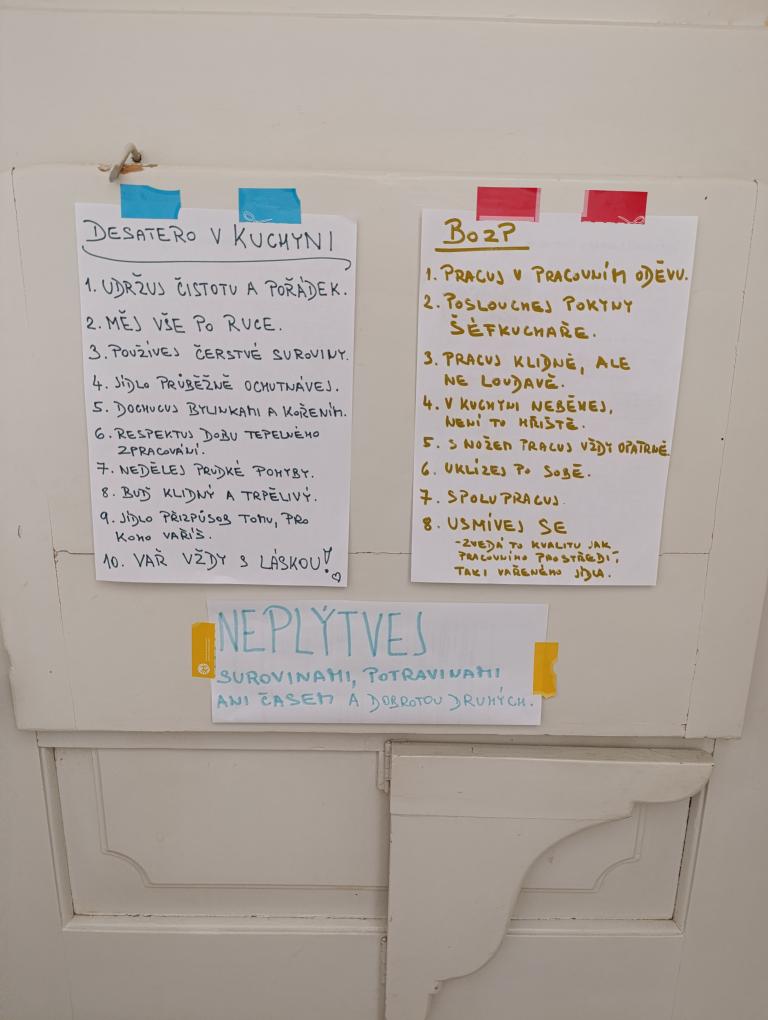 DESATERO V KUCHYNI
1. UDRŽUJ ČISTOTU A POŘÁDEK.
2. MĚJ VŠE PO RUCE.
3. POUŽÍVEJ ČERSTVÉ SUROVINY.
4. JÍDLO PRŮBĚŽNĚ OCHUTNÁVEJ.
5. DOCHUCUJ BYLINKAMI A KOŘENÍM.
6. RESPEKTUJ DOBU TEPELNÉHO
ZPRACOVÁNÍ.
7. NEDĚLEJ PRUDKÉ POHYBY.
8. BUĎ KLIDNÝ A TRPĚLIVÝ.
9. JÍDLO PŘIZPŮSOB TOMU, PRO
KOHO VAŘÍŠ.
10. VAŘ VŽDY S LÁSKOU!
BOZP
1. PRACUJ V PRACOVNÍM ODĚVU.
2. POSLOUCHEJ POKYNY
ŠÉFKUCHAŘE.
3. PRACUJ KLIDNĚ, ALE
NE LOUDAVĚ.
4. V KUCHYNI NEBĚHEJ,
NENÍ TO HŘIŠTĚ.
5. S NOŽEM PRACUJ VŽDY OPATRNĚ.
6. UKLÍZEJ PO SOBĚ.
7. SPOLUPRACUJ.
8. USMÍVEJ SE
-ZVEDÁ TO KVALITU JAK
PRACOVNÍHO PROSTŘEDÍ,
TAK I VAŘENÉHO JÍDLA.
NEPLÝTVEJ
SUROVINAMI, POTRAVINAMI
ANI ČASEM A DOBROTOU DRUHÝCH.